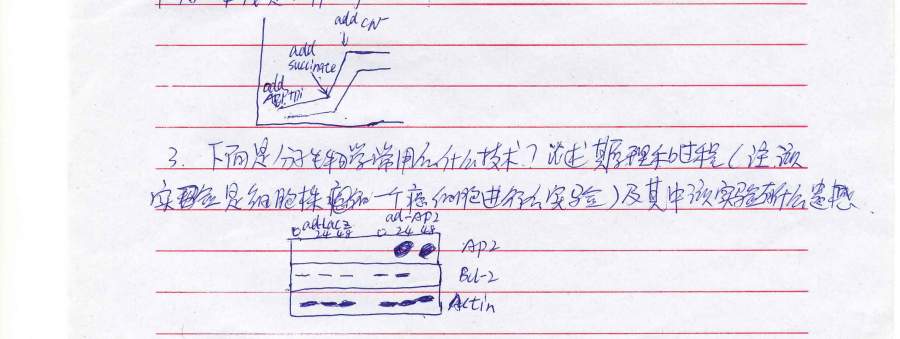 add CN-
add
succinate
add
ADP+Pi
3. 下面是分子生物学常用的什么技术？论述其原理和过程（注该
实验是细胞株瘤的一个癌细胞进行的实验）及其中该实验有什么
ad-lacz ad-AP2
0 24 48 0 24 48
AP2
Bcl-2
Actin